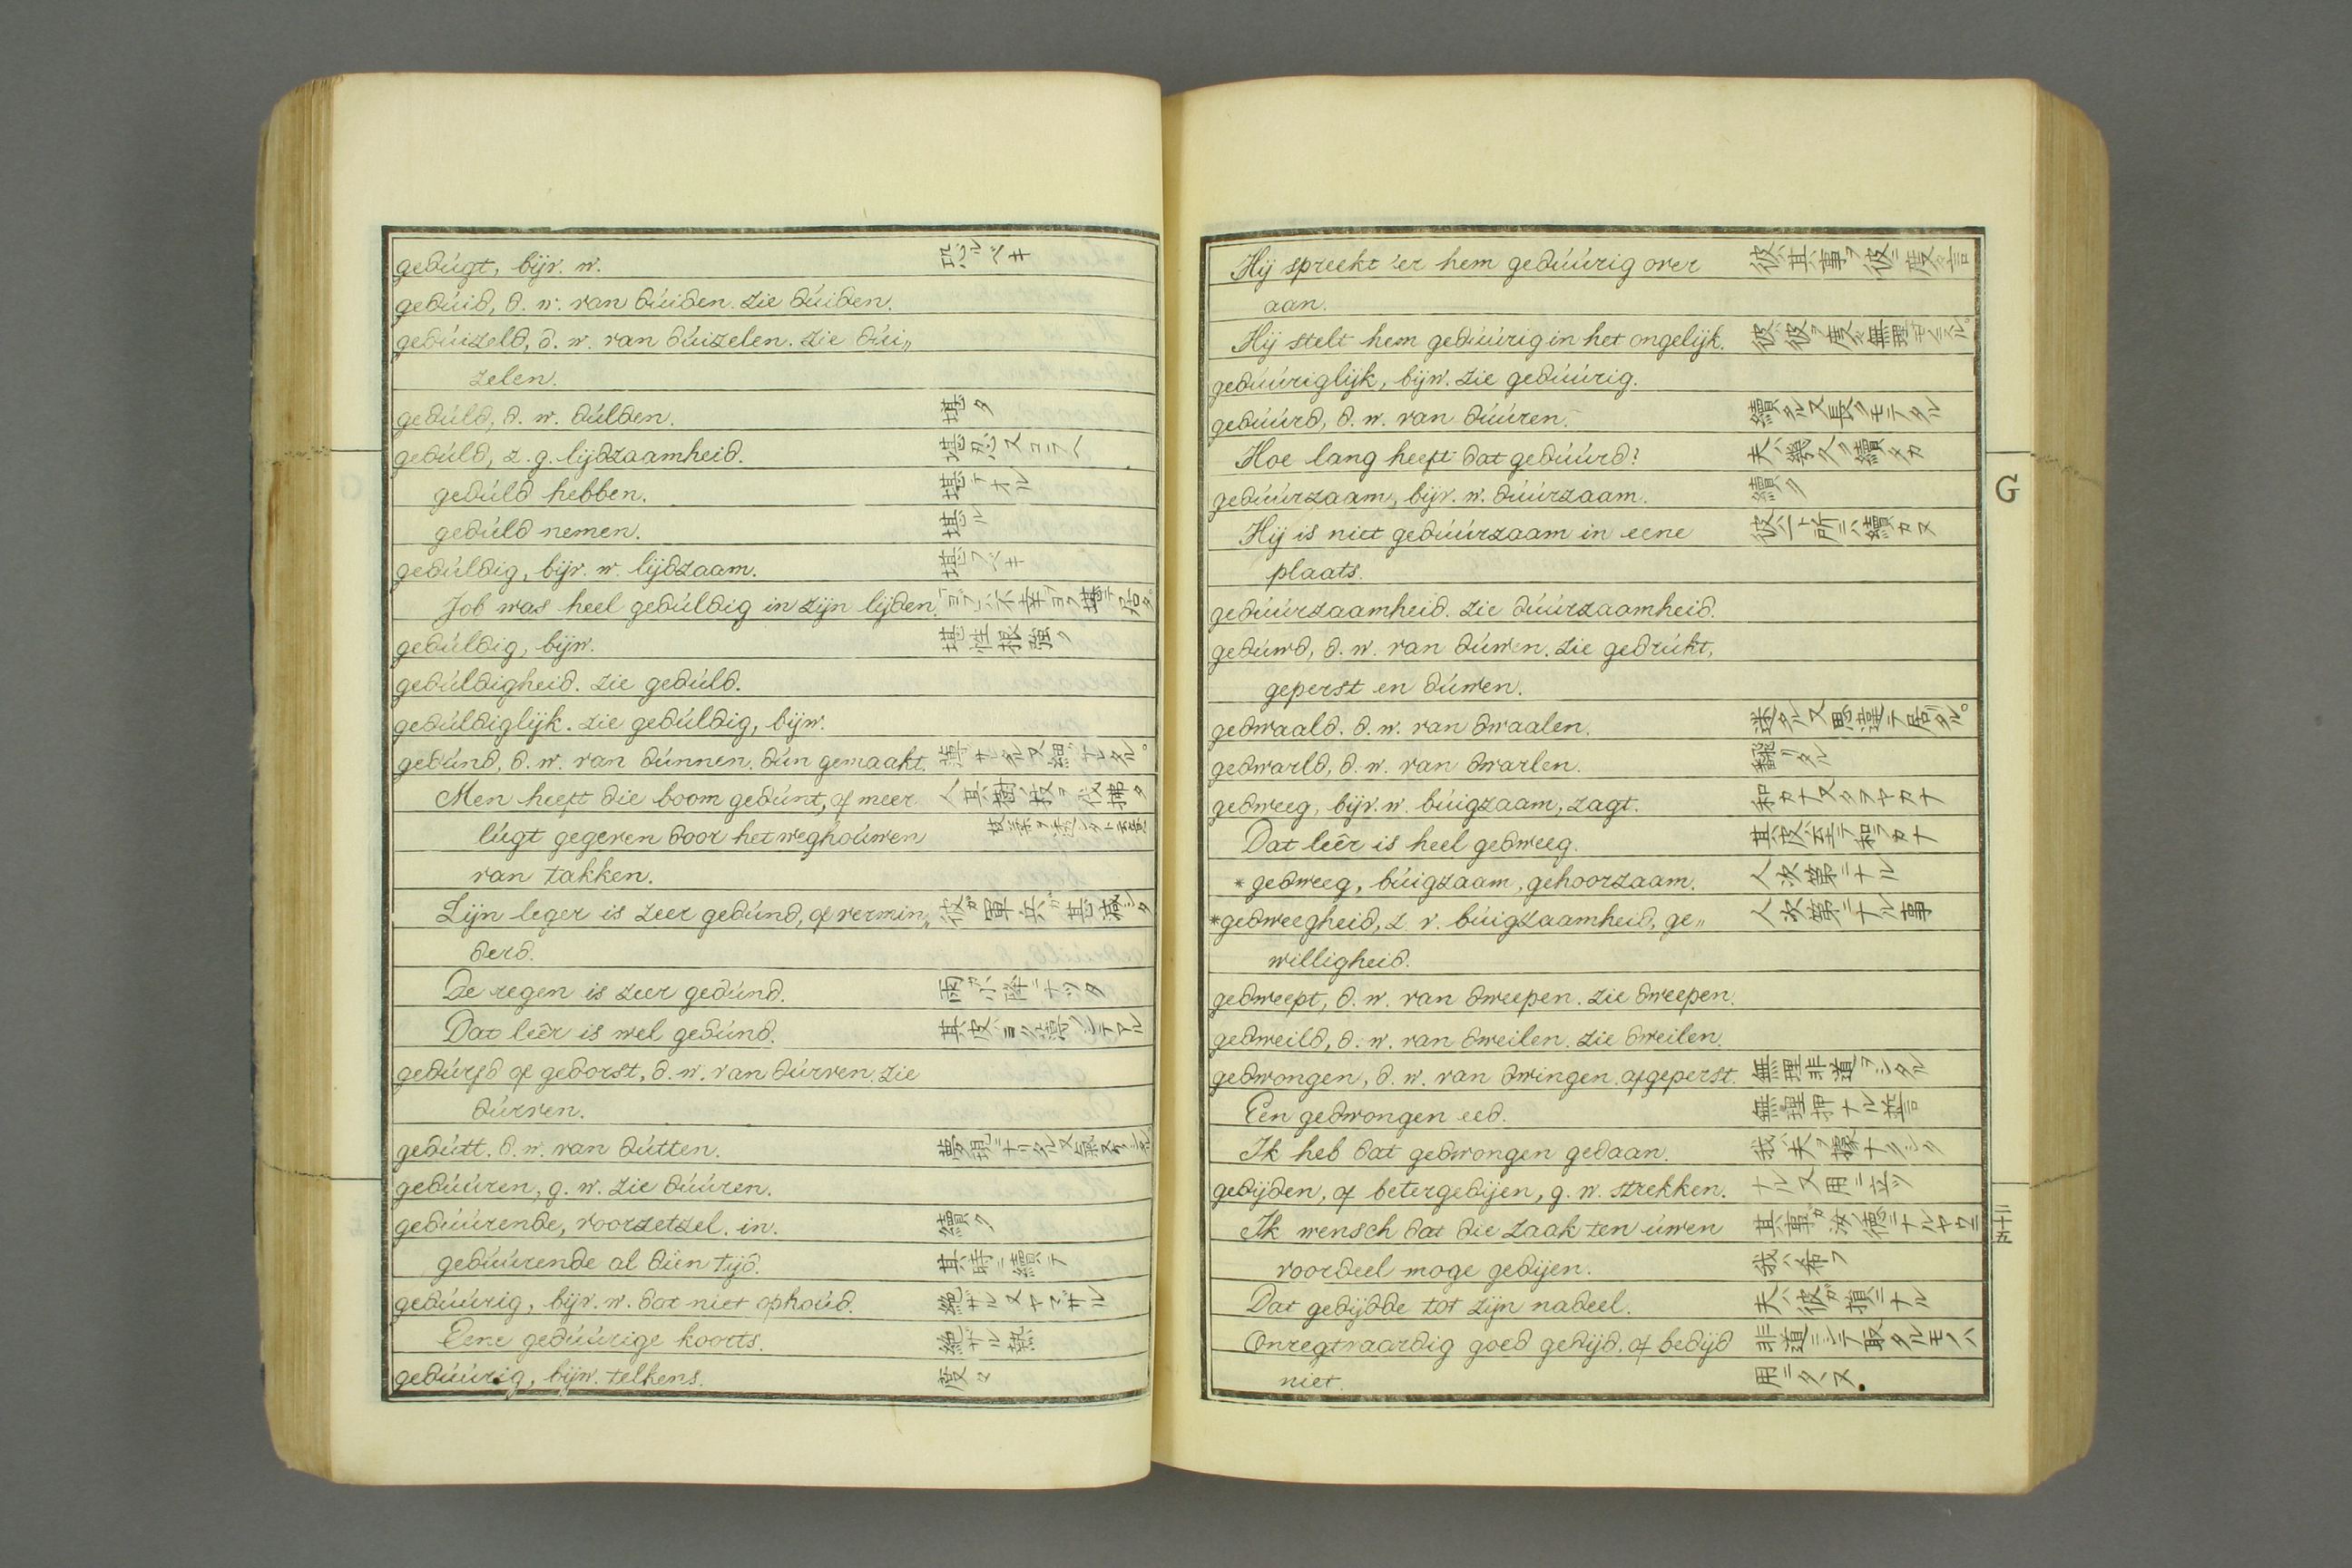 gedúgt, bijv. w. 恐ルベキ
gedúid, d. w. van dúiden. zie dúiden.
gedúizeld, d. w. van dúizelen. zie dúi„
zelen.
gedúld, d. w. dúlden. 堪タ
gedúld, z. g. lijdzaamheid. 堪忍又コラヘ
gedúld hebben. 堪テオル
gedúld nemen. 堪ル
gedúldig, bijv. w. lijdzaam. 堪フベキ
Job was heel gedúldig in zijn lijden.
gedúldig, bijw. 堪性根強ク
gedúldigheid. zie gedúld.
gedúldiglijk. zie gedúldig, bijw.
gedúnd, d. w. van dúnnen. dún gemaakt.
Men heeft die boom gedúnt, of meer 人其樹ノ枝ヲ伐拂タ
lúgt gegeven door het weghoúwen
van takken.
Zijn leger is zeer gedúnd, of vermin„ 彼ガ軍兵ガ甚減シタ
derd.
De regen is zeer gedúnd. 雨ガ小降ニナツタ
Dat leêr is wel gedúnd.
gedúrfd of gedorst, d. w. van dúrven. zie
dúrven.
gedútt. d. w. van dútten.
gedúúren, g. w. zie dúúren.
gedúúrende, voorzetzel. in. 續ク
gedúúrende al dien tijd. 其時ニ續テ
gedúúrig, bijv. w. dat niet ophoúd. 絶ザル又ヤマザル
Eene gedúúrige koorts. 絶ザル熱
gedúúrig, bijw. telkens. 度々
Hij spreekt 'er hem gedúúrig over 彼ハ其事ヲ彼ニ度々言
aan.
Hij stelt hem gedúúrig in het ongelijk.
gedúúriglijk, bijw. zie gedúúrig.
gedúúrd, d. w. van dúúren. 續タル又長クモテタル
Hoe lang heeft dat gedúúrd? 夫ハ幾久ク續タカ
gedúúrzaam, bijv. w. dúúrzaam. 續ク
Hij is niet gedúúrzaam in eene 彼ハ一ト所ニハ續カヌ
plaats.
gedúúrzaamheid. zie dúúrzaamheid.
gedúwd, d. w. van dúwen. zie gedrúkt,
geperst en dúwen.
gedwaald. d. w. van dwaalen. 迷タル又思違テ居タル。
gedwarld, d. w. van dwarlen. 飜リタル
gedweeg, bijv. w. búigzaam, zagt. 和カナ又タヲヤカナ
Dat leêr is heel gedweeg. 其皮ハ至テ和ラカナ
* gedweeg, búigzaam, gehoorzaam. 人次第ニナル
* gedweegheid, z. v. búigzaamheid, ge„ 人次第ニナル事
willigheid.
gedweept, d. w. van dweepen. zie dweepen.
gedweild, d. w. van dweilen. zie dweilen.
gedwongen, d. w. van dwingen. afgeperst. 無理非道ヲシタル
Een gedwongen eed. 無理押ナル誓言
Ik heb dat gedwongen gedaan. 我ハ夫ヲ據ナクシタ
gedijden, of betergedijen, g. w. strekken. ナル又用ニ立ツ
Ik wensch dat die zaak ten úwen 其事ガ汝ノ徳ニナルヤウニ
voordeel moge gedijen. 我ハ希フ
Dat gedijdde tot zijn nadeel. 夫ハ彼ガ損ニナル
Onregtvaardig goed gedijd. of bedijd 非道ニシテ取タルモノハ
niet. 用ニタヽヌ
G
二十五